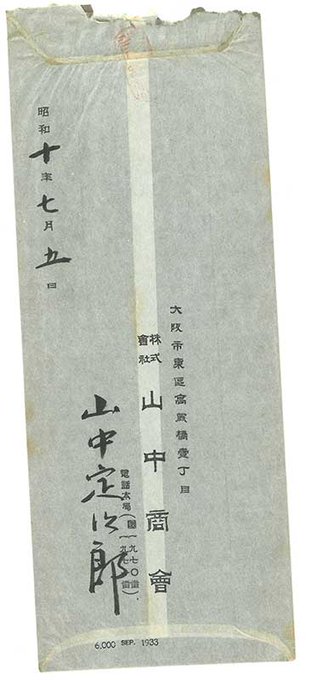 大阪市東區高麗橋壹丁目
株式
會社
山中商會
電話本局
山中定次郎
昭和十年七月五日
6.000 SEP. 1933